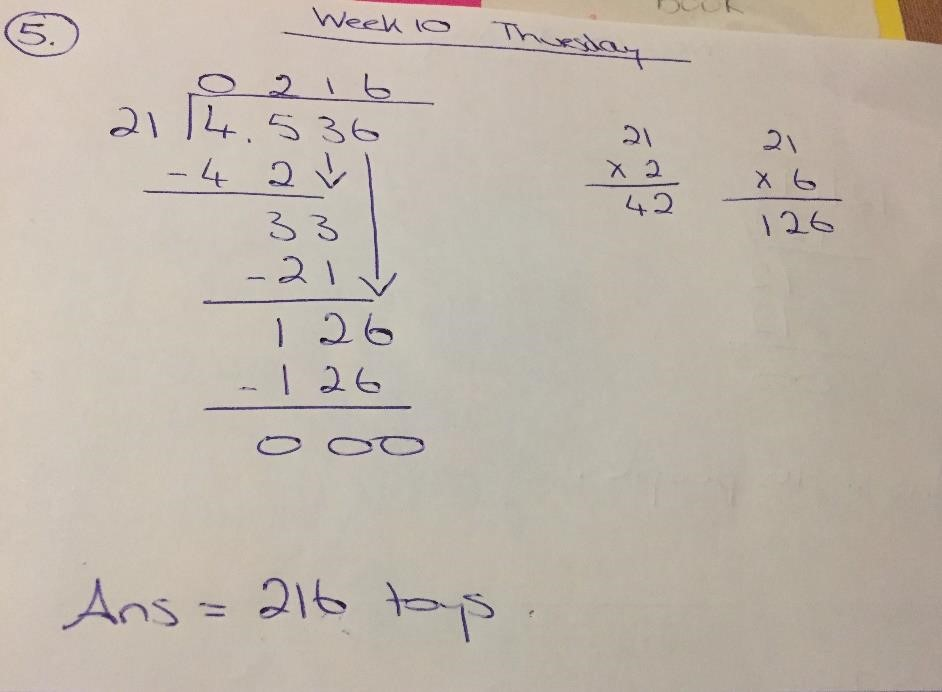 BOOK
5. Week 10 Thursday
0 2 1 6
21 4.536
- 4 2
3 3
- 2 1
1 2 6
- 1 2 6
0 0 0
21
x 2
42
21
x 6
126
Ans = 216 toys.